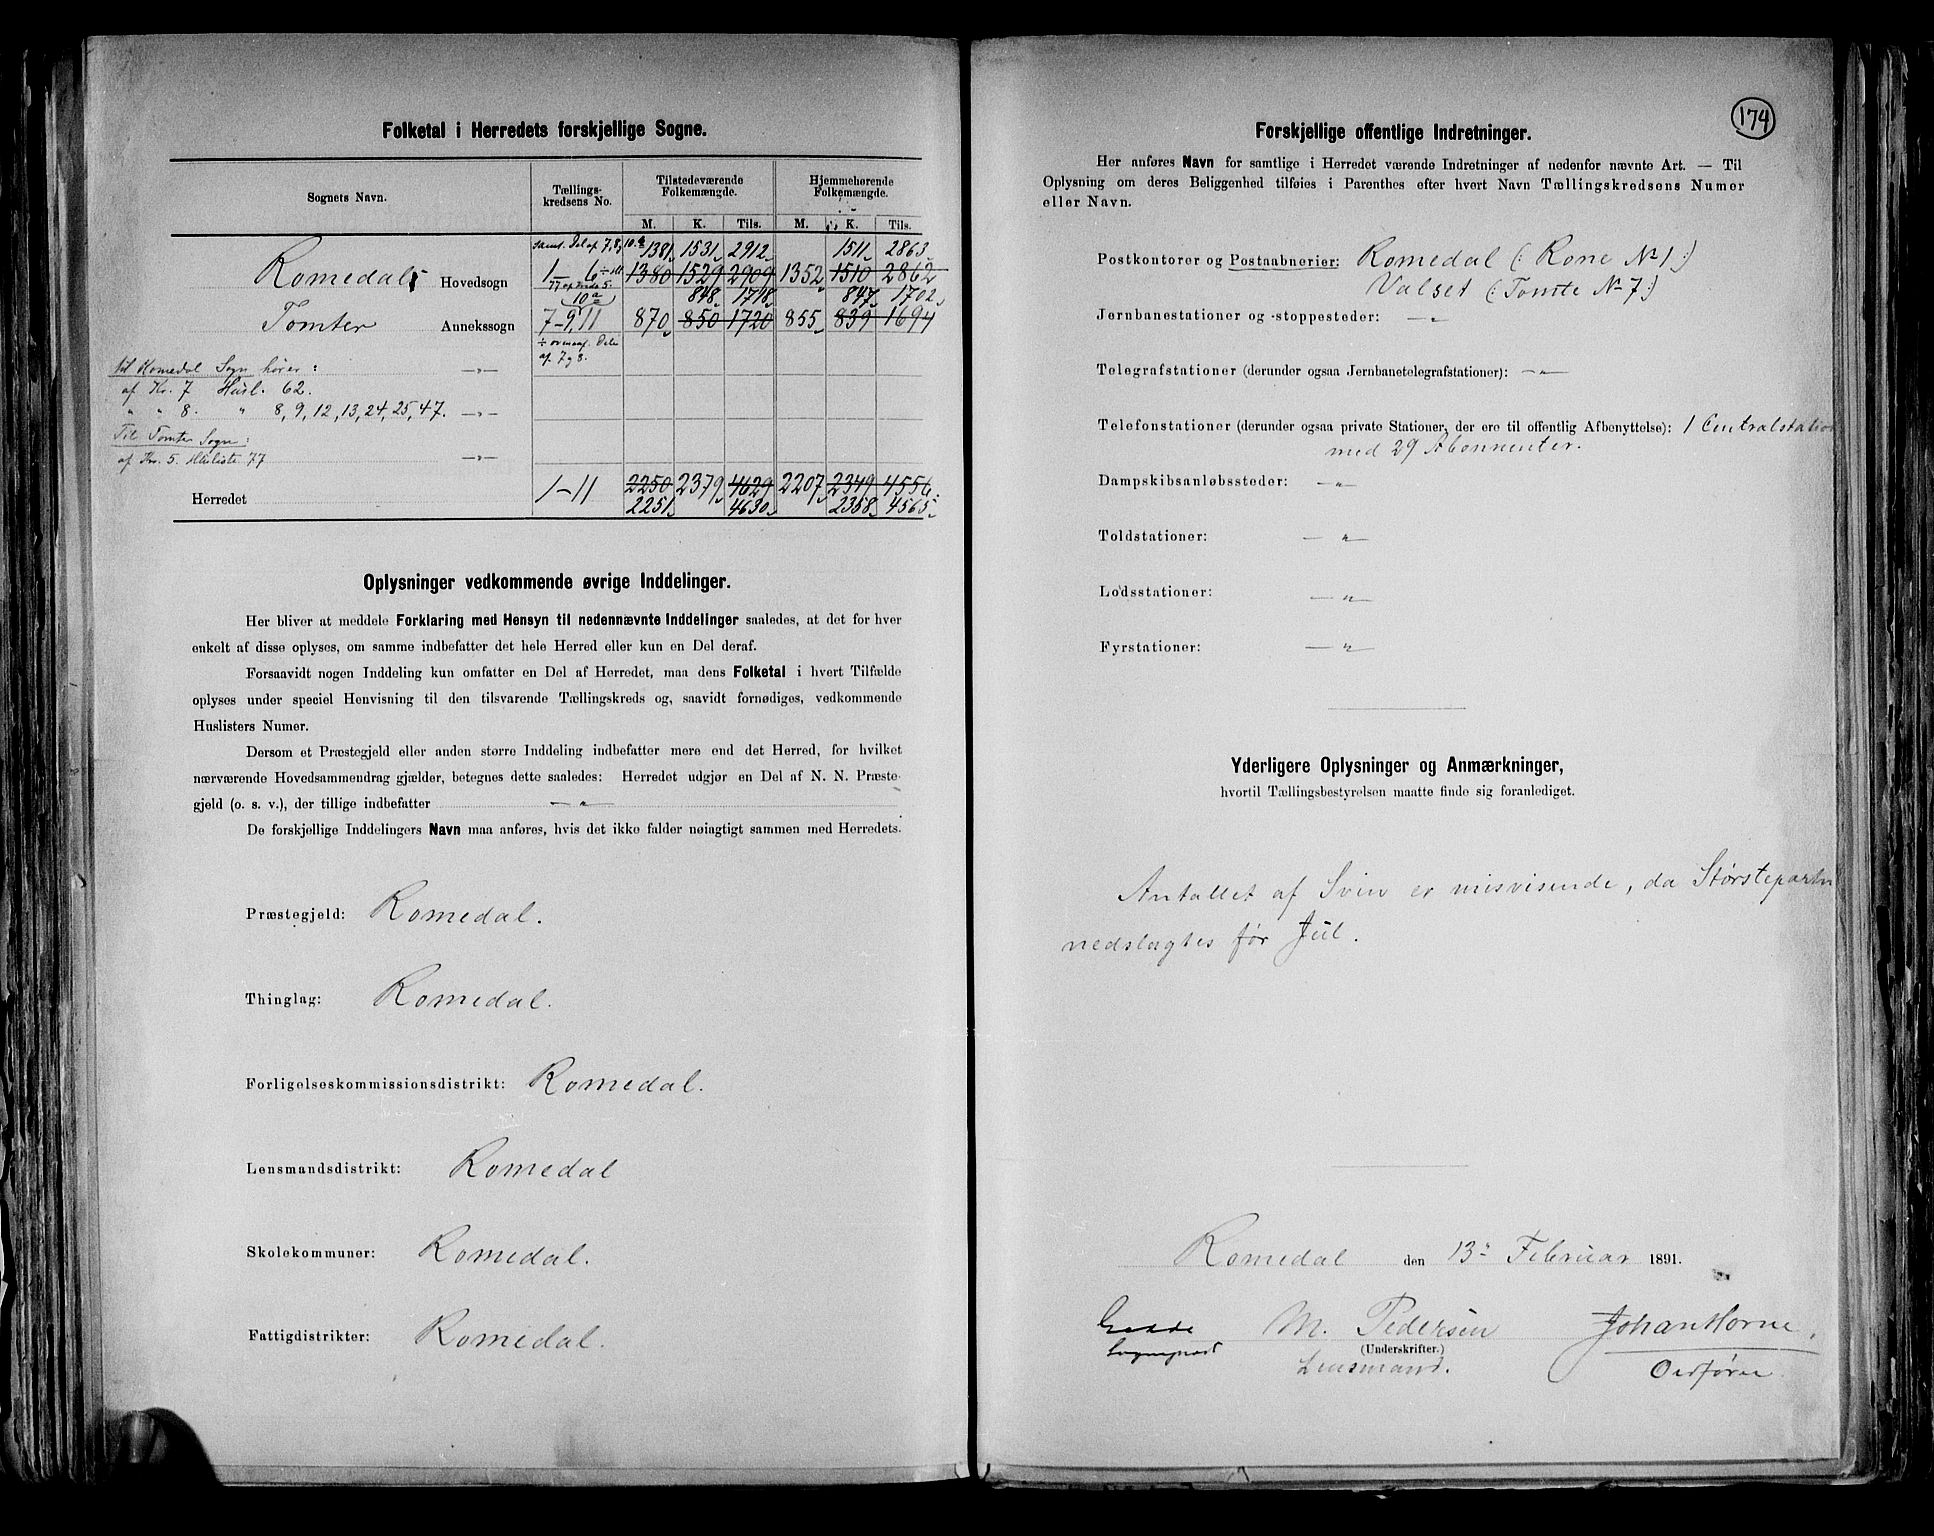 Folketal i Herredets forskjellige Sogne.
Sognets Navn. Tællings- kredsens No. Tilstedeværende Folkemængde. Hjemmehørende Folkemængde.
M. K. Tils. M. K. Tils.
samt Del af 7, 8 og 10.a 1381 1531 2912 1511 2863
Romedals Hovedsogn 1–6 1380 1529 2909 1352 1510 2862
77 af Kreds 5.
10a 848 1718 847 1702
Tomter Annekssogn 7–9, 11 870 850 1720 855 839 1694
÷ ovennf. Dele
af 7 og 8.
til Romedal Sogn hører: —„—
af Kr. 7 Husl. 62.
„ „ 8. „ 8, 9, 12, 13, 24, 25, 47. —„—
Til Tomter Sogn:
af Kr. 5. Husliste 77 —„—
Herredet 1–11 2250 2379 4629 2207 2349 4556
2251 4630 2358 4565
Oplysninger vedkommende øvrige Inddelinger.
Her bliver at meddele Forklaring med Hensyn til nedennævnte Inddelinger saaledes, at det for hver
enkelt af disse oplyses, om samme indbefatter det hele Herred eller kun en Del deraf.
Forsaavidt nogen Inddeling kun omfatter en Del af Herredet, maa dens Folketal i hvert Tilfælde
oplyses under speciel Henvisning til den tilsvarende Tællingskreds og, saavidt fornødiges, vedkommende
Huslisters Numer.
Dersom et Præstegjeld eller anden større Inddeling indbefatter mere end det Herred, for hvilket
nærværende Hovedsammendrag gjælder, betegnes dette saaledes: Herredet udgjør en Del af N. N. Præste-
gjeld (o. s. v.), der tillige indbefatter —„—
De forskjellige Inddelingers Navn maa anføres, hvis det ikke falder nøiagtigt sammen med Herredets.
Præstegjeld: Romedal.
Thinglag: Romedal.
Forligelseskommissionsdistrikt: Romedal.
Lensmandsdistrikt: Romedal
Skolekommuner: Romedal.
Fattigdistrikter: Romedal.
174
Forskjellige offentlige Indretninger.
Her anføres Navn for samtlige i Herredet værende Indretninger af nedenfor nævnte Art. — Til
Oplysning om deres Beliggenhed tilføies i Parenthes efter hvert Navn Tællingskredsens Numer
eller Navn.
Postkontorer og Postaabnerier: Romedal (: Rone No 1 :)
Valset (: Tomte No 7 :)
Jernbanestationer og -stoppesteder: —„—
Telegrafstationer (derunder ogsaa Jernbanetelegrafstationer): —„—
Telefonstationer (derunder ogsaa private Stationer, der ere til offentlig Afbenyttelse): 1 Centralstation
med 29 Abonnenter.
Dampskibsanløbssteder: —„—
Toldstationer: —„—
Lodsstationer: —„—
Fyrstationer: —„—
Yderligere Oplysninger og Anmærkninger,
hvortil Tællingsbestyrelsen maatte finde sig foranlediget.
Antallet af Svin er misvisende, da Størsteparten
nedslagtes før Jul.
Romedal den 13de Februar 1891.
M. Pedersen Johan Horne
(Underskrifter.)
Sognepræst Lensmand. Ordfører